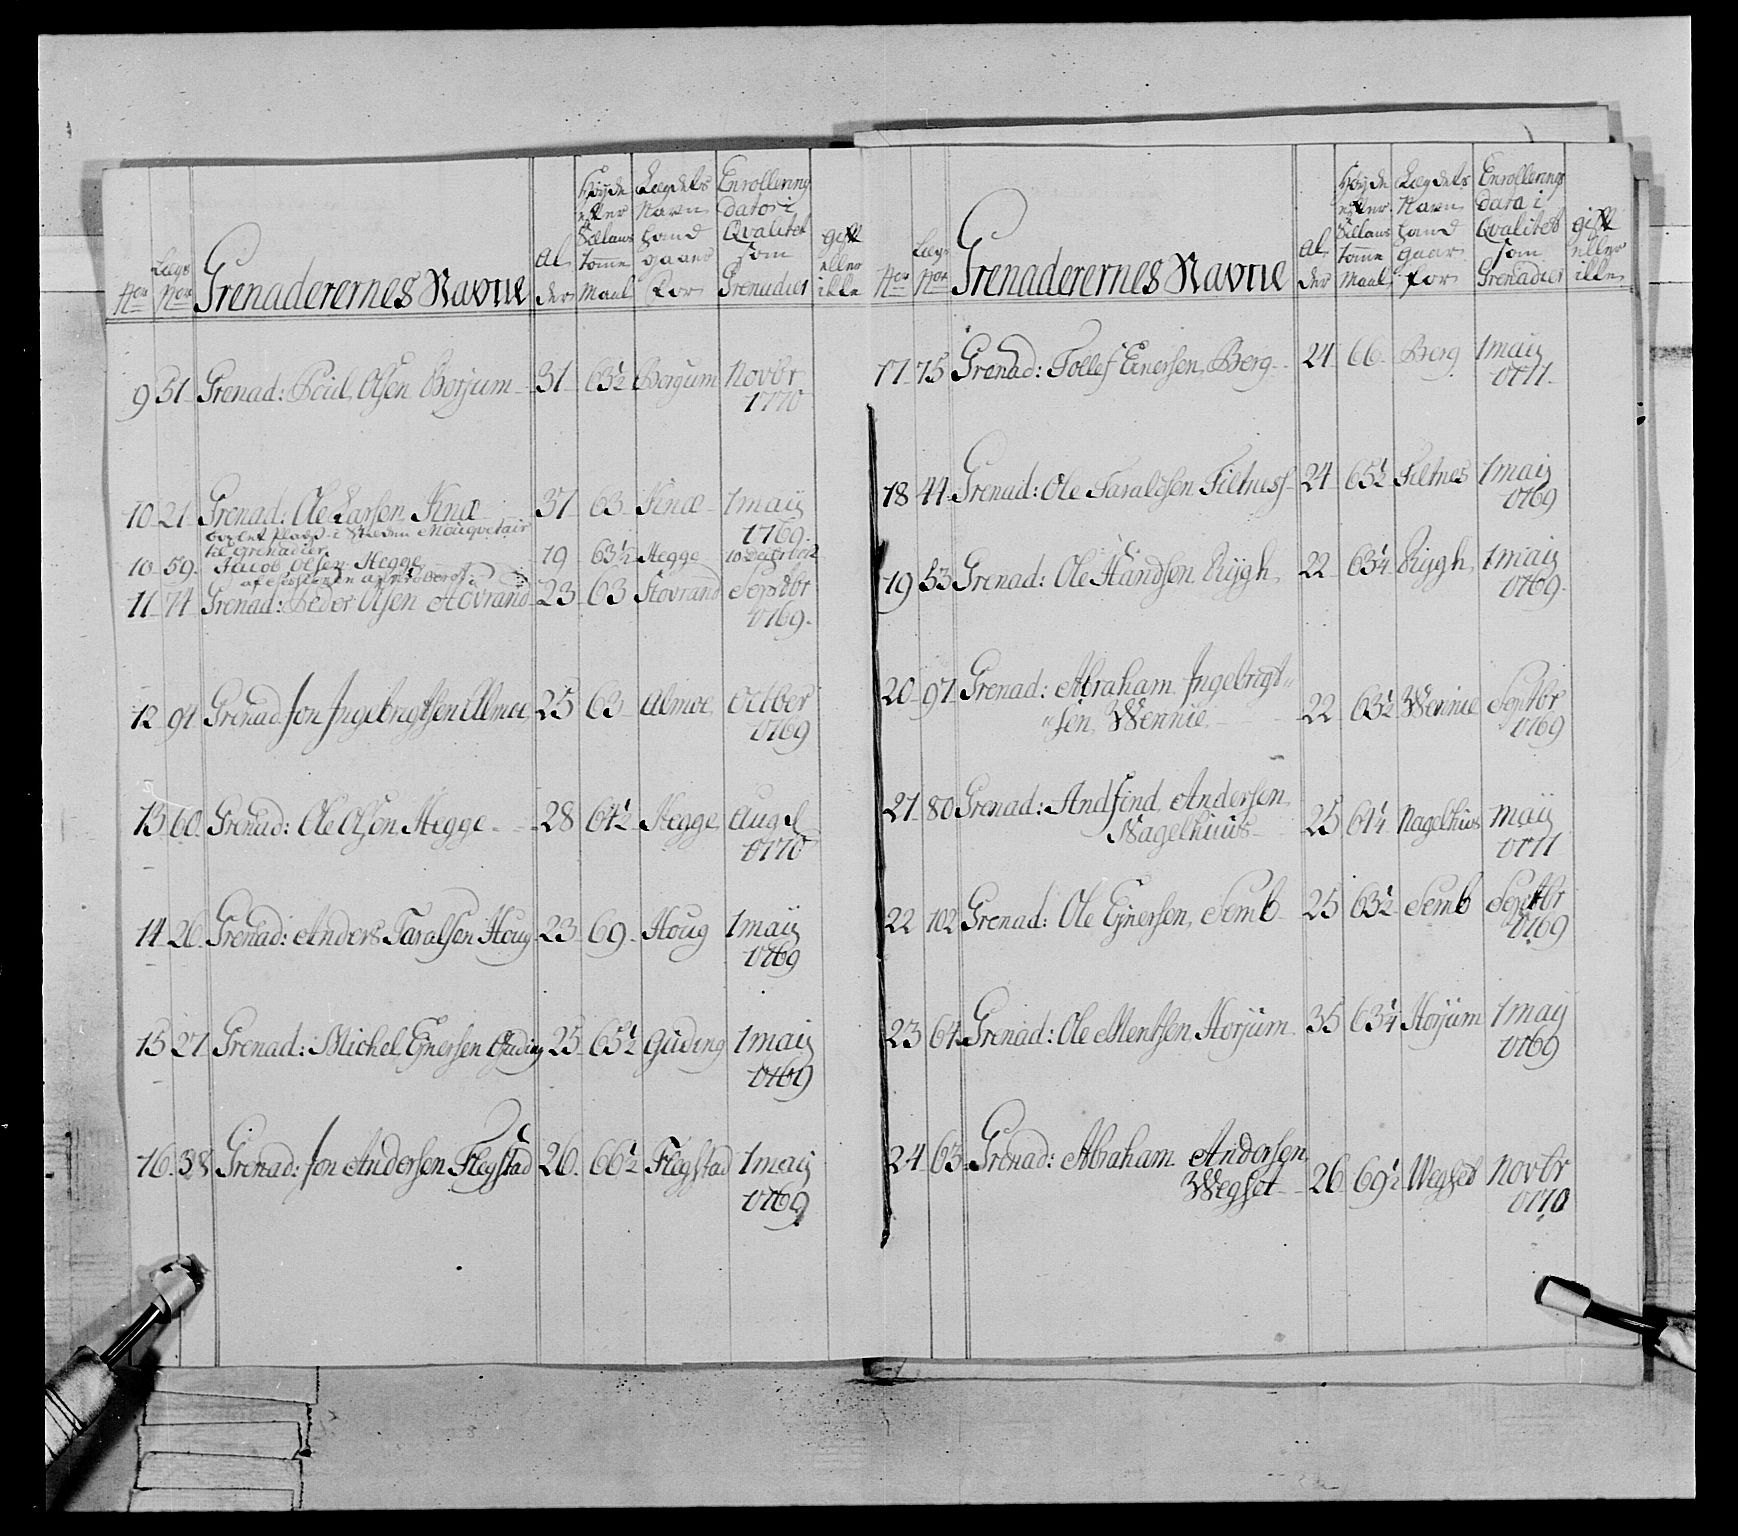 Nor
Lægs Nor
Grenaderernes Navne
Al der
Høyde efter Sællans Tomme Maal
Lægdets Navn hand gaaer for
Enrollering Dato i Qvalitet som Grenadier
gift eller ikke
9 51 Grenad: Poul Olsen Borjum 31 63½ Borgum Novbr
1770
10 21 Grenad: Ole Larsen Kinæ 37 63 Kinæ 1 maij
1769
til Grenadier
10 59 Jacob Olsen Hegge 19 63½ Hegge
11 74 Grenad: Peder Olsen Hovrand 23 63 Hovrand Septbr
1769
12 91 Grenad Jon Ingebrigtsen Almoe 25 63 Almoe Octber
1769
13 60 Grenad: Ole Olsen Hegge 28 64½ Hegge Aug
1770
14 26 Grenad: Anders Taralsen Houg 23 69 Houg 1 maij
1769
15 27 Grenad: Michel Ejnersen Guding 25 65½ Guding 1 maij
1769
16 38 Grenad: Jon Andersen Flegstad 26 66½ Flegstad 1 maij
1769
Nor
Lægs Nor
Grenaderernes Navne
Al der
Høyde efter Sællans Tomme Maal
Lægdets Navn hand gaar for
Enrollerings data i Qvalited som Grenadier
gift eller ikke
17 75 Grenad: Tollef Einersen Berg 24 66 Berg 1 maij
1771
18 44 Grenad: Ole Taralsen Tiltness 24 65½ Tiltnes 1 maij
1769
19 53 Grenad: Ole Handsen Rygh 22 63¼ Rygh 1 maij
1769
20 97 Grenad: Abraham Ingebrigt
sen Wennie 22 63½ Wennie Septbr
1769
21 80 Grenad: Andfind Andersen
Nagelhuus 25 61¼ Nagelhus maij
1771
22 102 Grenad: Ole Ejnersen Semb 25 63½ Semb Septbr
1769
23 64 Grenad: Ole Mentsen Horjum 35 63¼ Horjum 1 maij
1769
24 63 Grenad: Abraham Andersen
Wegset 26 69½ Wegset Novbr
1770